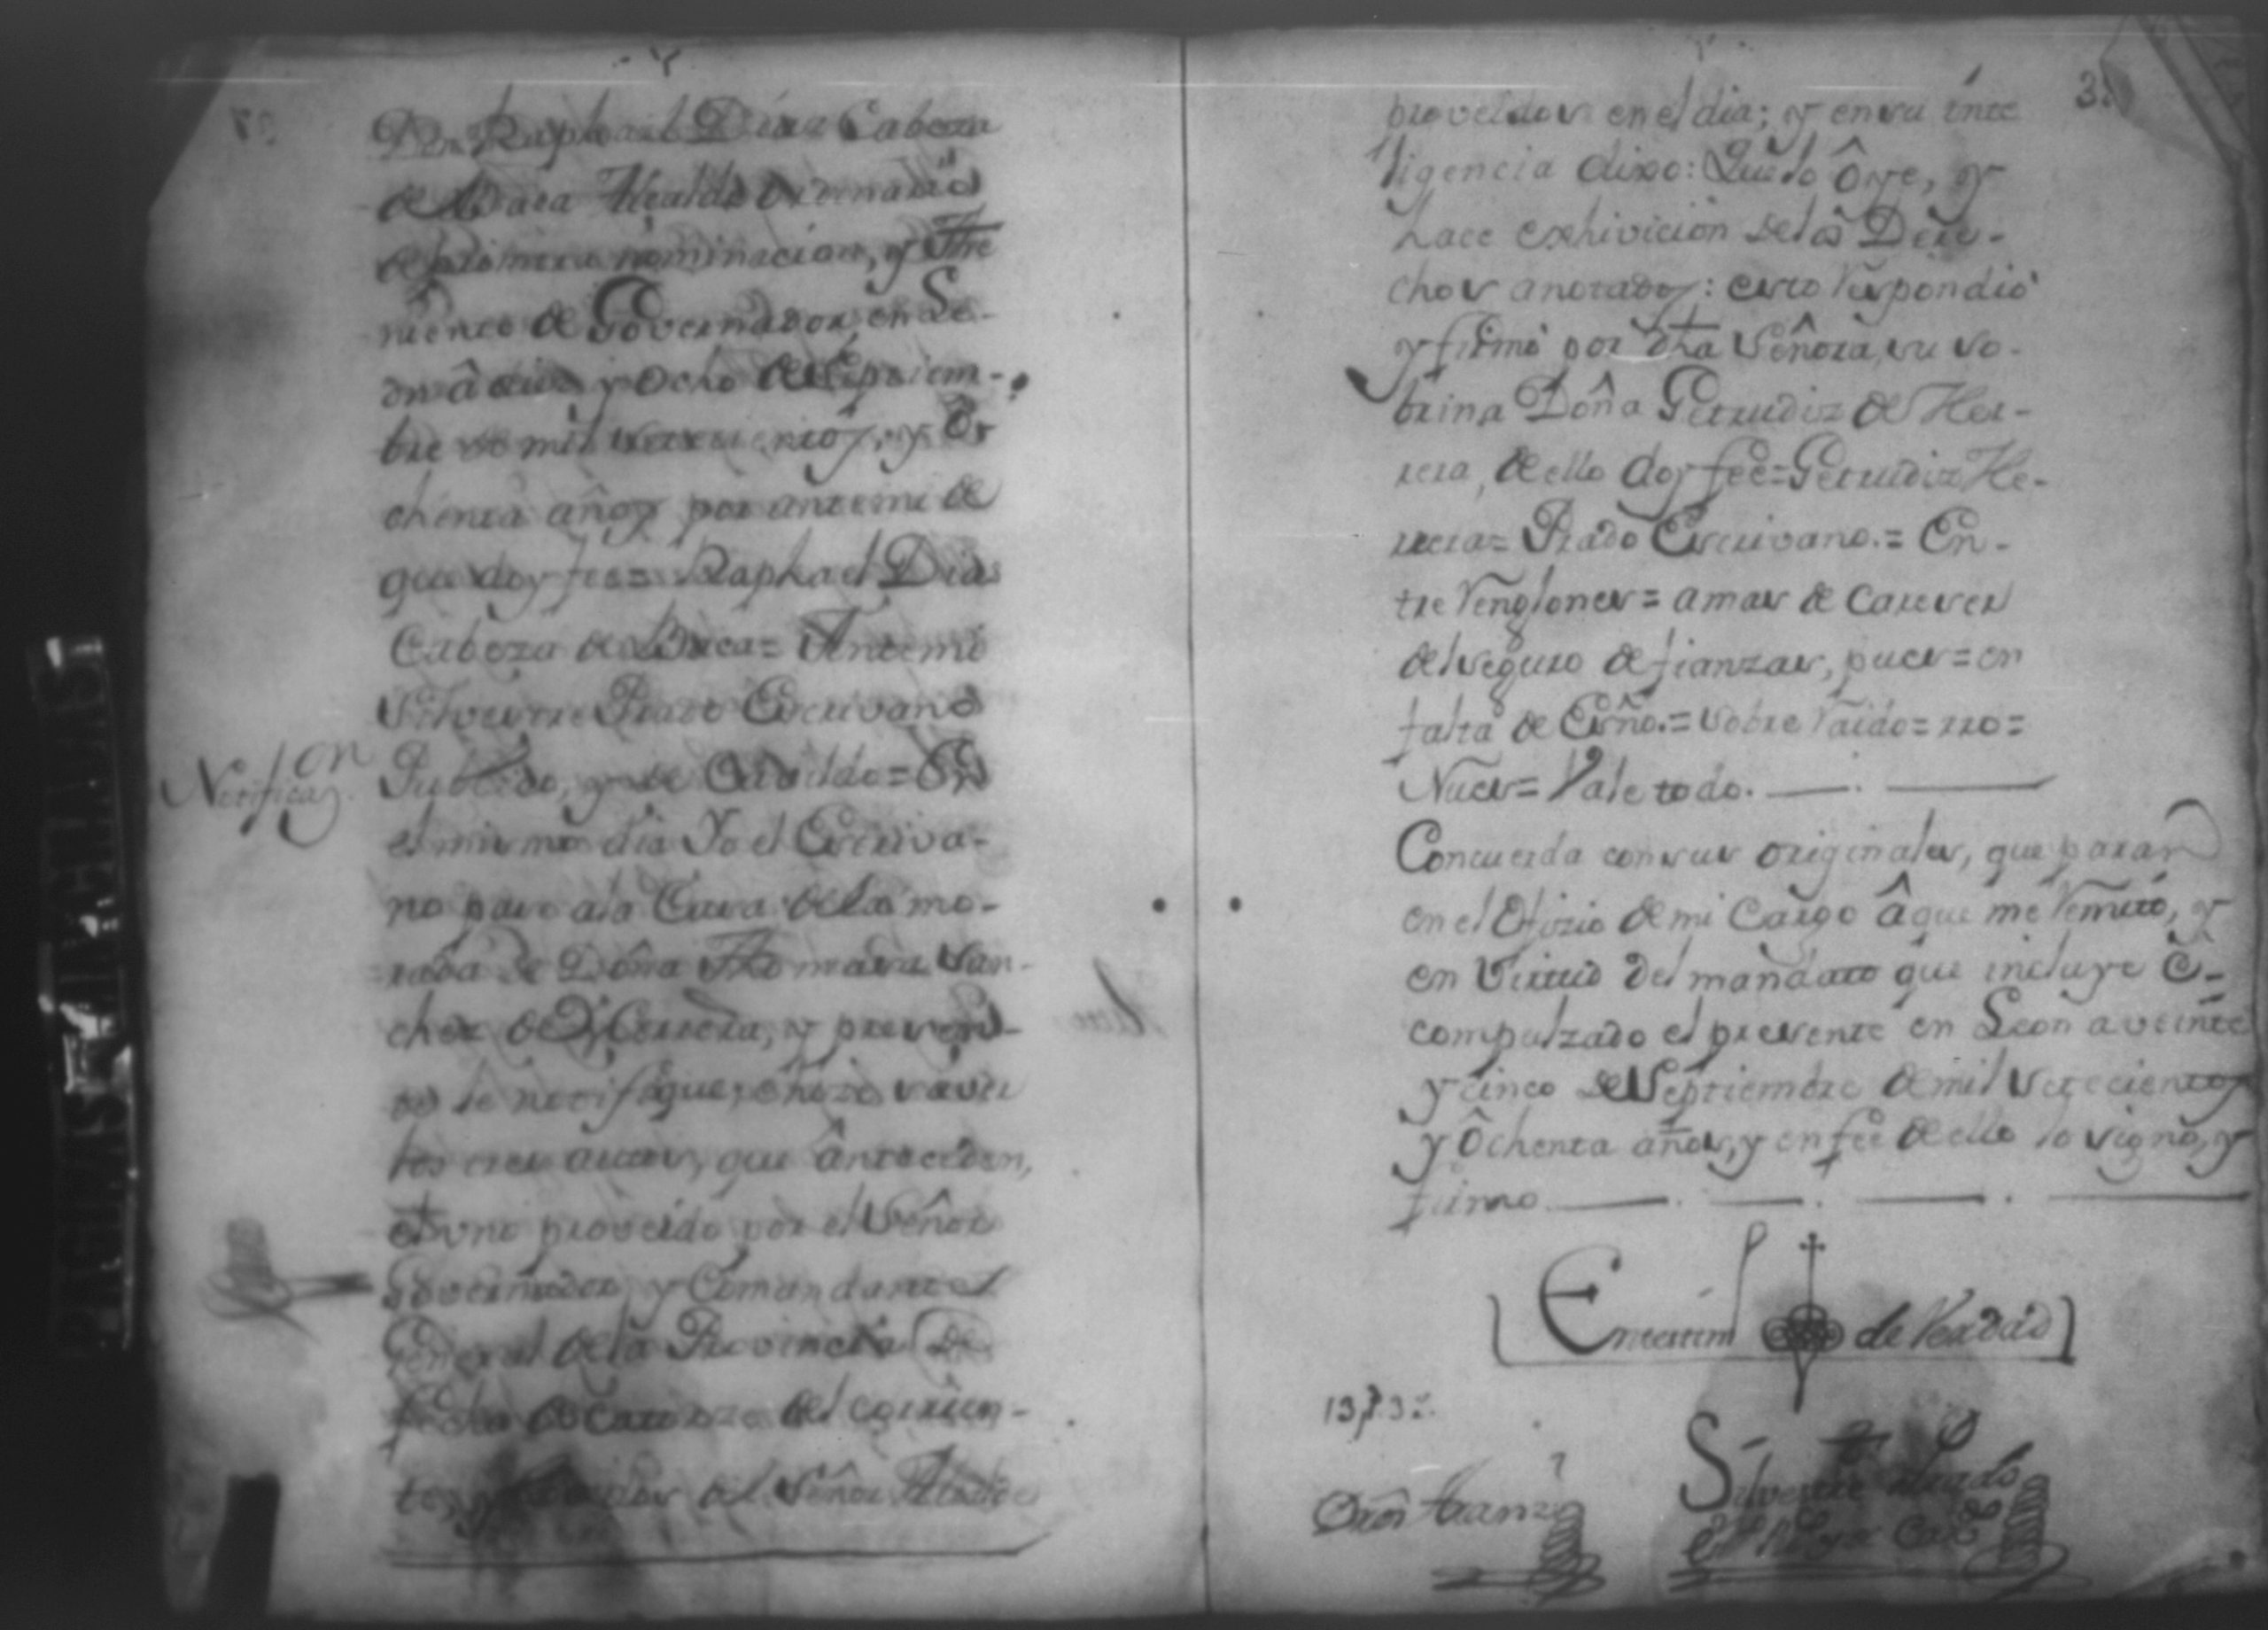 Don Raphael Diaz Cabeza
de Baca Alcalde ordinario
de primera nominacion, y The
niente de Governador, en Le-
on â dies y ocho de Septiem-
bre de mil setecientos, y ô-
chenta años por ante mi de
que doy fee= Raphael Dias
Cabeza de Baca= Ante mi
Silvestre Prado Escrivano
Publico, y de Cavildo= En
Notificaz.on
el mismo dia Yo el Escriva-
no pase a la Casa de la mo-
rada de Doña Thomasa San-
chez de Herrera, y presen-
te le notifique, ê hize saver
los tres autos, que ânteceden,
el uno proveido por el Señor
Governador, y Comandante
General de la Provincia de
fecha de catorze del corrien-
te, y los del Señor Alcalde
3
proveidos en el dia; y en su inte
ligencia dixo: Que lo Ôye, y
hace exhivicion de los Dere-
chos anotados: esto respondió
y firmó por dha Señora, su so-
brina Doña Getrudiz de Her-
rera, de ello doy fee= Getrudiz He-
rrera= Prado Escrivano.= En-
tre renglones= amas de careser
del seguro de fianzas, pues= en
falta de Esno.= sobre raido= rro=
Nues= Vale todo.
Concuerda con sus originales, que paran
en el Ofizio de mi Cargo Â que me remito, y
en Virtud del mandato que incluye ê-
compulzado el presente en Leon a veinte
y cinco de Septiembre de mil setecientos
y Ôchenta años, y en fee de ello lo signo, y
firmo
Entestim.o de Verdad
Silvestre Prado